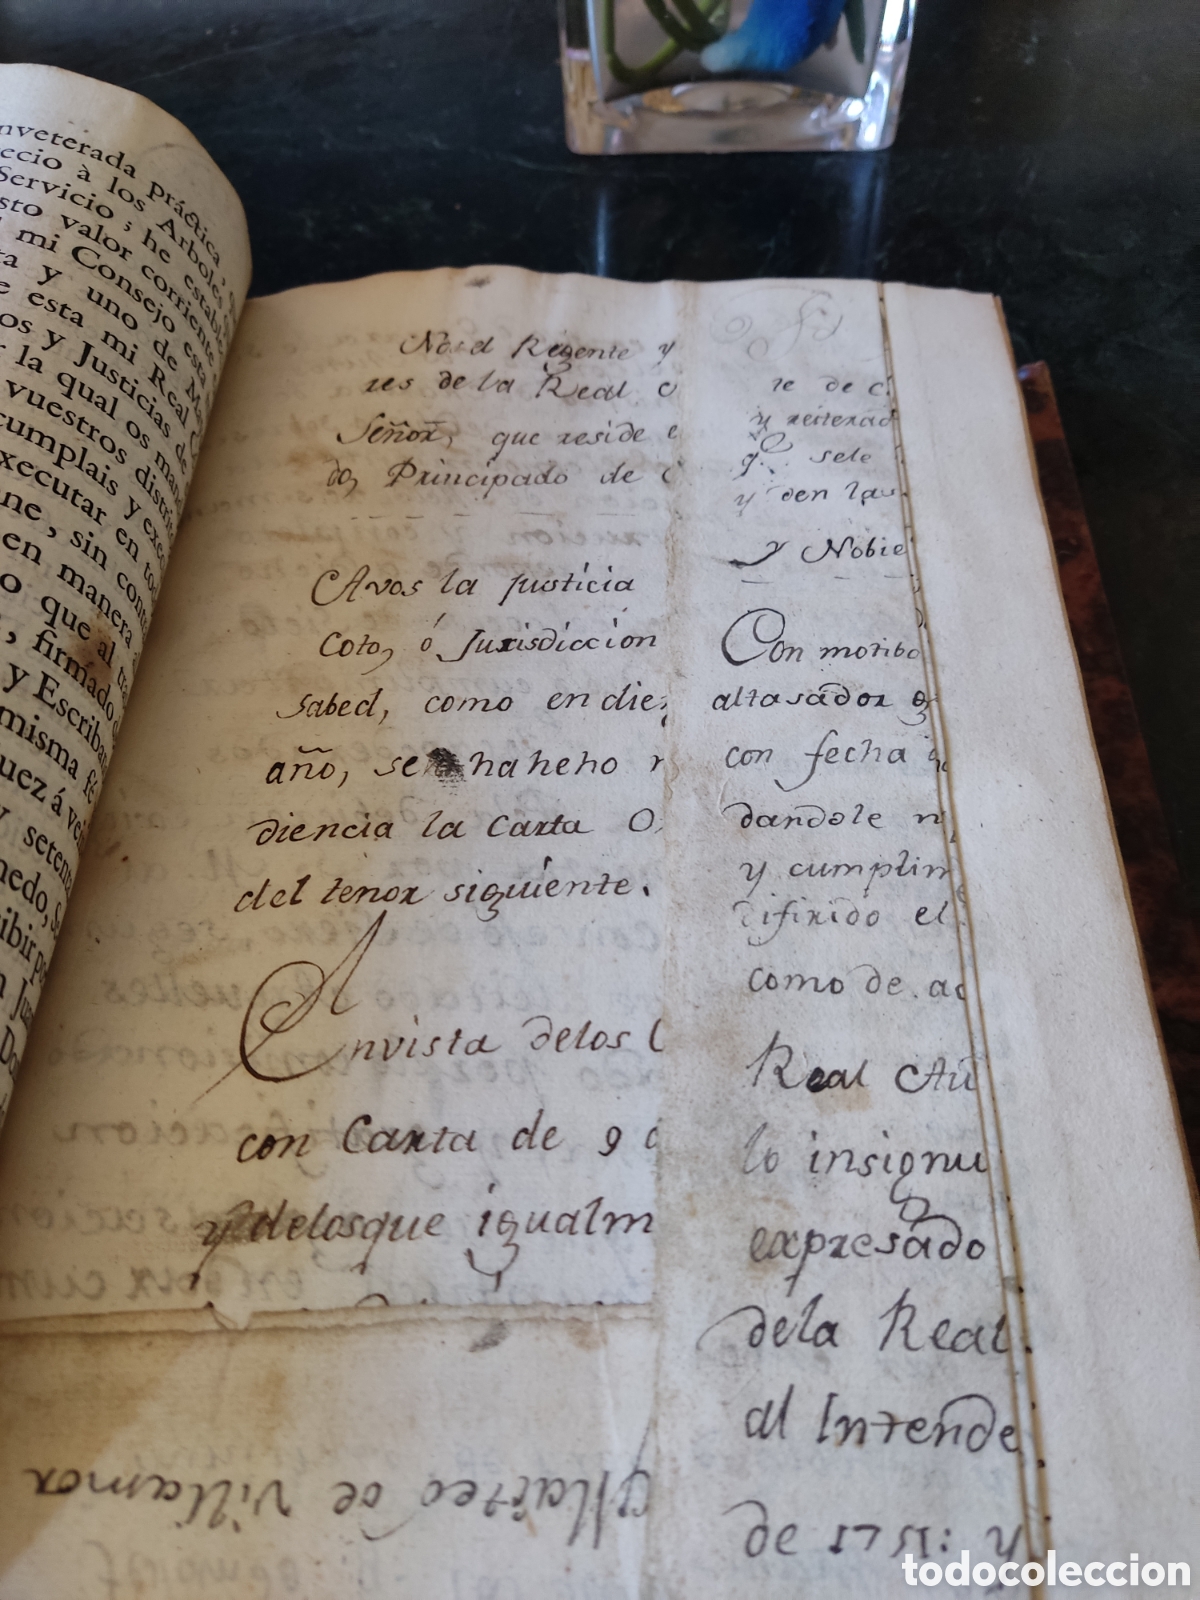 nveterada práctica,
ecio à los Arboles
Servicio; he estable
sto valor corriente
mi Consejo esta
ta y uno de Ma
e esta mi Real C
os y Justicias de
r la qual os mando
vuestros distri
cumplais y exec
xecutar en tod
ne, sin cont
en manera
o que al tra
, firmado d
y Escriban
misma fé
uez á vei
y setenta
nedo, S
ibir po
n Ju
Do
Nos el Regente y
res de la Real
Señor, que reside e
do, Principado de
Avos la justicia
Coto, ó Jurisdiccion
sabed, como en diez
año, se ha heho r
diencia la Carta O
del tenor siguiente.
Envista delos
con Carta de 9
y delosque igualm
Matteo de Villamor
re de
y reiterad
sele
y den las
y Noble
Con motibo
altasador
con fecha
dandole
y cumplim
difirido el
como de ac
Real Au
lo insignu
expresado
dela Real
al Intende
de 1515: y
todocoleccion